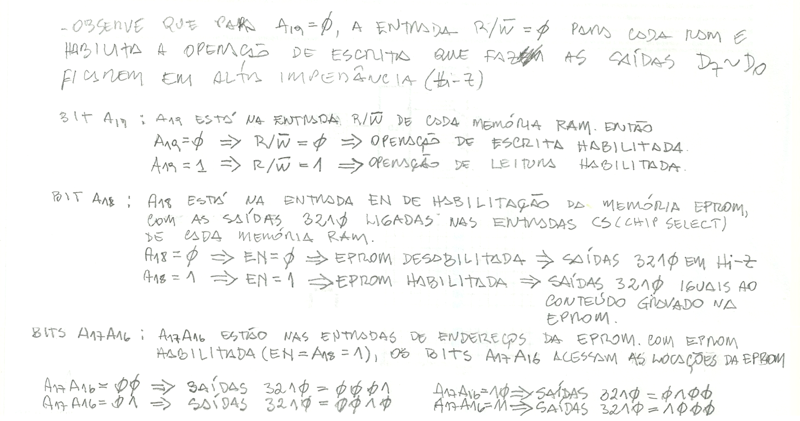 - OBSERVE QUE PARA A19=0, A ENTRADA R/W̅=0 PARA CADA RAM E
HABILITA A OPERAÇÃO DE ESCRITA QUE FAZEM AS SAÍDAS D7~D0
FICAREM EM ALTA IMPEDÂNCIA (Hi-Z)
BIT A19 : A19 ESTÁ NA ENTRADA R/W̅ DE CADA MEMÓRIA RAM. ENTÃO
A19=0 ⇒ R/W̅ = 0 ⇒ OPERAÇÃO DE ESCRITA HABILITADA.
A19=1 ⇒ R/W̅ = 1 ⇒ OPERAÇÃO DE LEITURA HABILITADA.
BIT A18 : A18 ESTÁ NA ENTRADA EN DE HABILITAÇÃO DA MEMÓRIA EPROM,
COM AS SAÍDAS 3210 LIGADAS NAS ENTRADAS CS (CHIP SELECT)
DE CADA MEMÓRIA RAM.
A18=0 ⇒ EN=0 ⇒ EPROM DESABILITADA ⇒ SAÍDAS 3210 EM Hi-Z
A18=1 ⇒ EN=1 ⇒ EPROM HABILITADA ⇒ SAÍDAS 3210 IGUAIS AO
CONTEÚDO GRAVADO NA
EPROM.
BITS A17A16 : A17A16 ESTÃO NAS ENTRADAS DE ENDEREÇOS DA EPROM. COM EPROM
HABILITADA (EN=A18=1), OS BITS A17A16 ACESSAM AS LOCAÇÕES DA EPROM
A17A16=00 ⇒ SAÍDAS 3210 = 0001 A17A16=10 ⇒ SAÍDAS 3210 = 0100
A17A16=01 ⇒ SAÍDAS 3210 = 0010 A17A16=11 ⇒ SAÍDAS 3210 = 1000